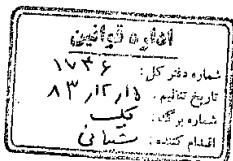 اداره قوانین
شماره دفتر کل: ۱۷۳۶
تاریخ تنظیم: ۸۳
شماره برگ: یک
اقدام کننده: